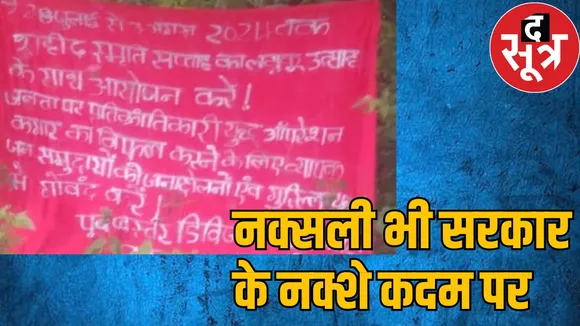 28 जुलाई से 3 अगस्त 2024 तक
शहीद स्मृति सप्ताह का उत्साह
के साथ आयोजन करें!
जनता पर प्रतिक्रांतिकारी युद्ध ऑपरेशन
कगार को विफल करने के लिए व्यापक
जन समुदायों को जनांदोलनों एवं गुरिल्ला
में गोलबंद करें!
पूर्व बस्तर डिवि
द
सूत्र
नक्सली भी सरकार
के नक्शे कदम पर